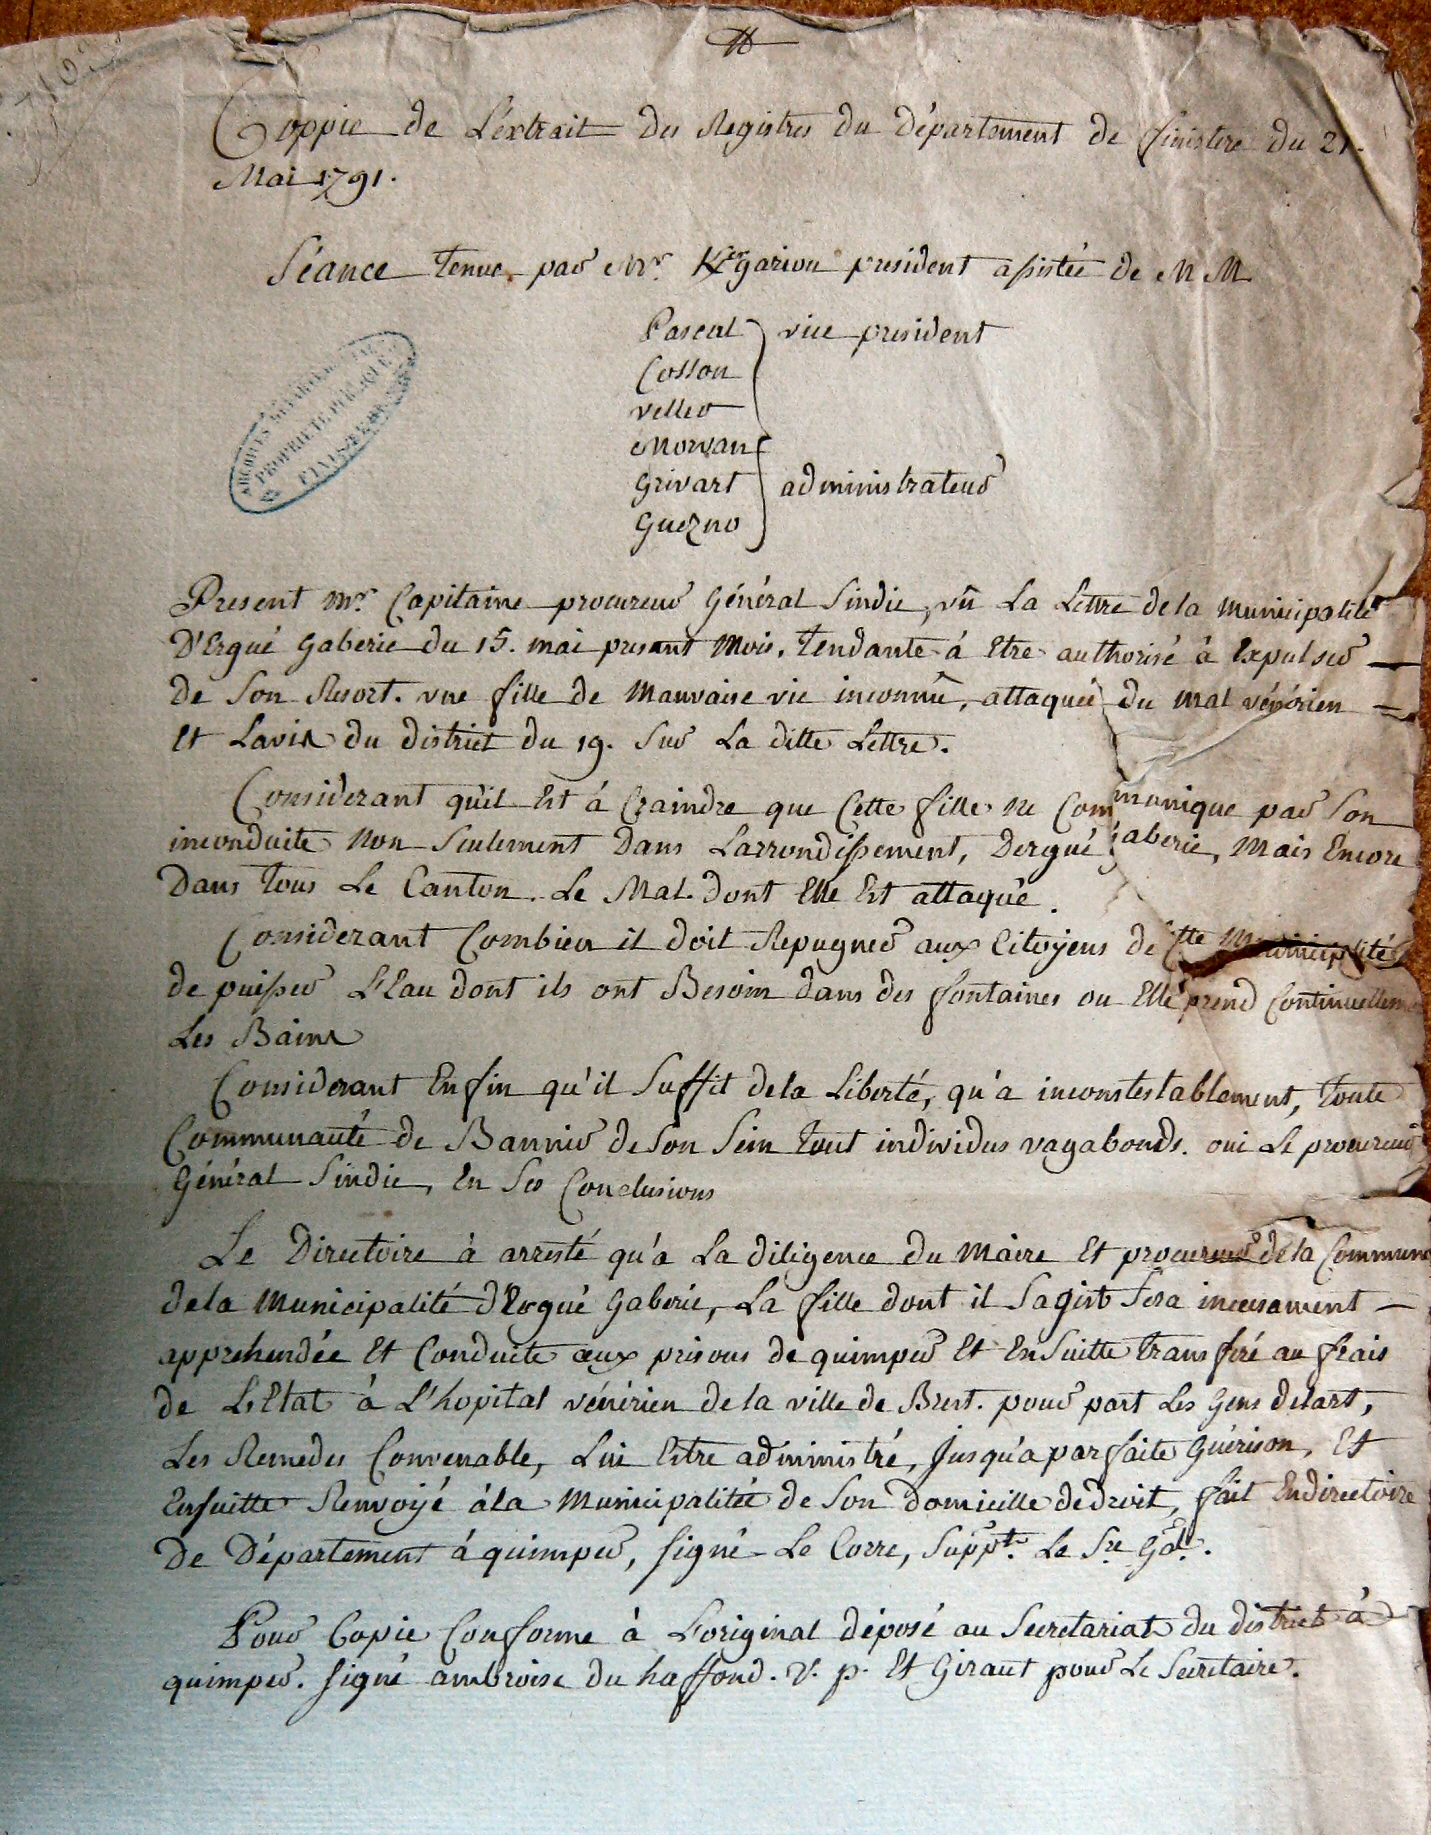 Coppie de L'éxtrait des Registres du Département de finistere du 21.
Mai 1791.
Séance tenue par Mr. Kergariou president assistée de M M
Pascal vice president
Cosson
veller
Morvan
Grivart administrateur
Guezno
ARCHIVES DÉPARTEMENTALES
PROPRIÉTÉ PUBLIQUE
FINISTÈRE
Present Mr. Capitaine procureur Général Sindic, vû La Lettre de la municipalité
D'Ergué Gaberic du 15. mai present Mois. tendante á Etre authorisé á Expulser
de Son Resort. une fille de Mauvaise vie inconnuë, attaquée du mal vénérien
Et Lavis du district du 19. Sur La ditte Lettre.
Considerant qu'il Est á Craindre que Cette fille ne Communique par Son
inconduite Non Seulement Dans Larrondissement, Dergué gaberic, Mais Encore
Dans tous Le Canton. Le Mal dont Elle Est attaqué.
Considerant Combien il doit Repugner aux Citoyens de Cette Municipalité
de puisser L'Eau dont ils ont Besoin dans des fontaines ou Elle prend Continuelleme
Les Bains
Considerant Enfin qu'il Suffit de la Liberté, qu'a inconstestablement, toute
Communauté de Bannir de Son Sein tout individus vagabonds. oui Le procureur
Général Sindic, En Ses Conclusions
Le Directoire à arresté qu'a La diligence du Maire Et procureur de la Commune
de la Municipalité d'Ergué Gaberic, La fille dont il Sagist Sera incessament
apprehendée Et Conduite aux prisons de quimper Et Ensuitte transféré au frais
de L'Etat à L'hopital vénérien de la ville de Brest. pour part Les Gens delart,
Les Remedes Convenable, Lui Estre administré, Jusqu'a parfaite Guérison, Et
Ensuitte Renvoyé á la Municipalitée de Son Domicille de droit, fait En directoire
De Département á quimper, signé Le Corre, Suppt. Le Sre Gal.
Pour Copie Conforme à L'original déposé au Secretariat du district à
quimper. signé ambroise du haffond. V. p. Et Giraut pour Le Secretaire.